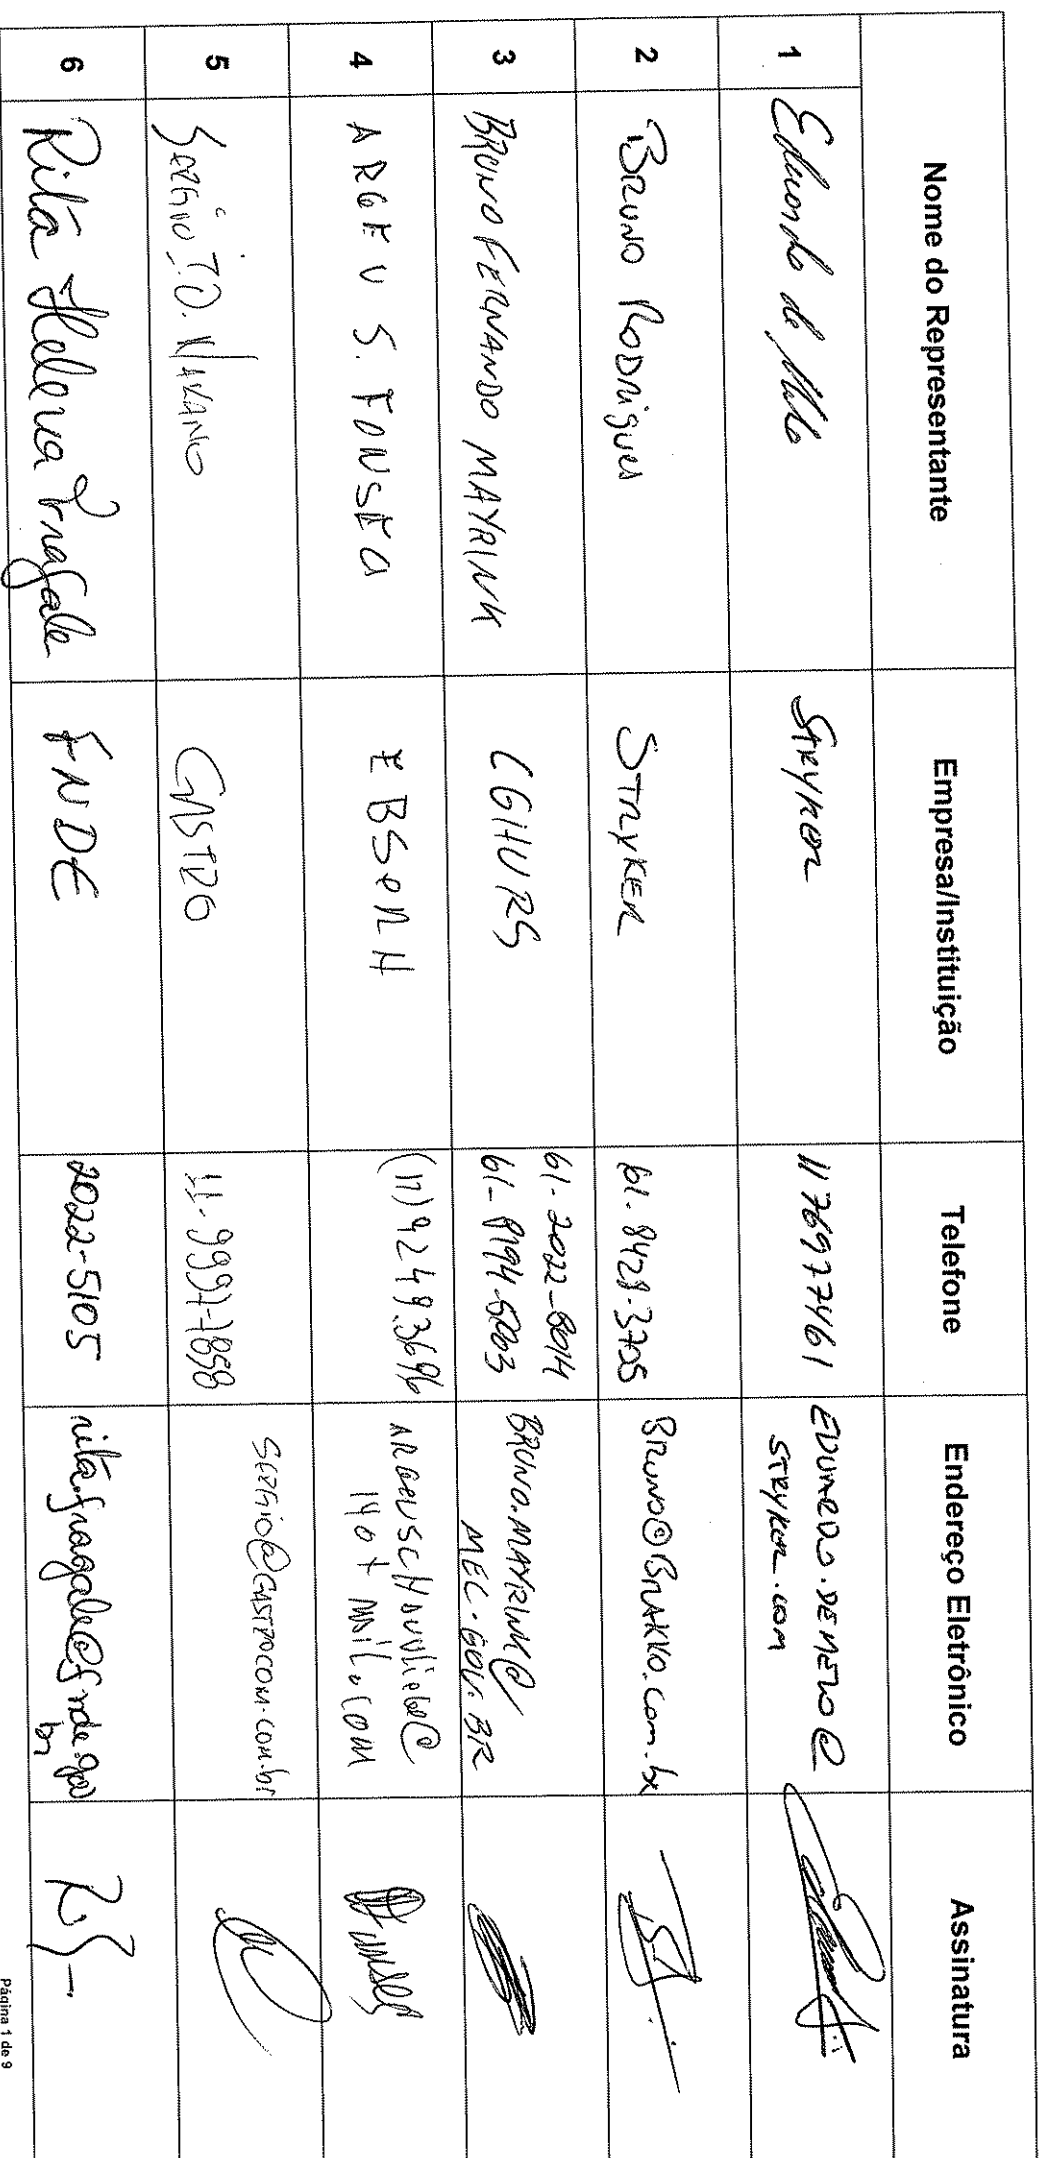 Nome do Representante Empresa/Instituição Telefone Endereço Eletrônico Assinatura
1 Eduardo de Mello STRYKER 11 76977461 EDUARDO.DEMELO@
STRYKER.com
2 Bruno Rodrigues STRYKER 61-8428-3705 Bruno@Brakko.com.br
3 BRUNO FERNANDO MAYRINK CGHURS 61-2022-8014
61-8194-5003 BRUNO.MAYRINK@
MEC.GOV.BR
4 ARGEU S. FONSECA EBSERH (17) 9249.3696
Hotmail.com
5 SERGIO T.O. NAKANO GASTRO 11-9997-7858 SERGIO@GASTROCOM.COM.br
6 Rita Helena Fragale FNDE 2022-5105 rita.fragale@fnde.gov
br
Página 1 de 9